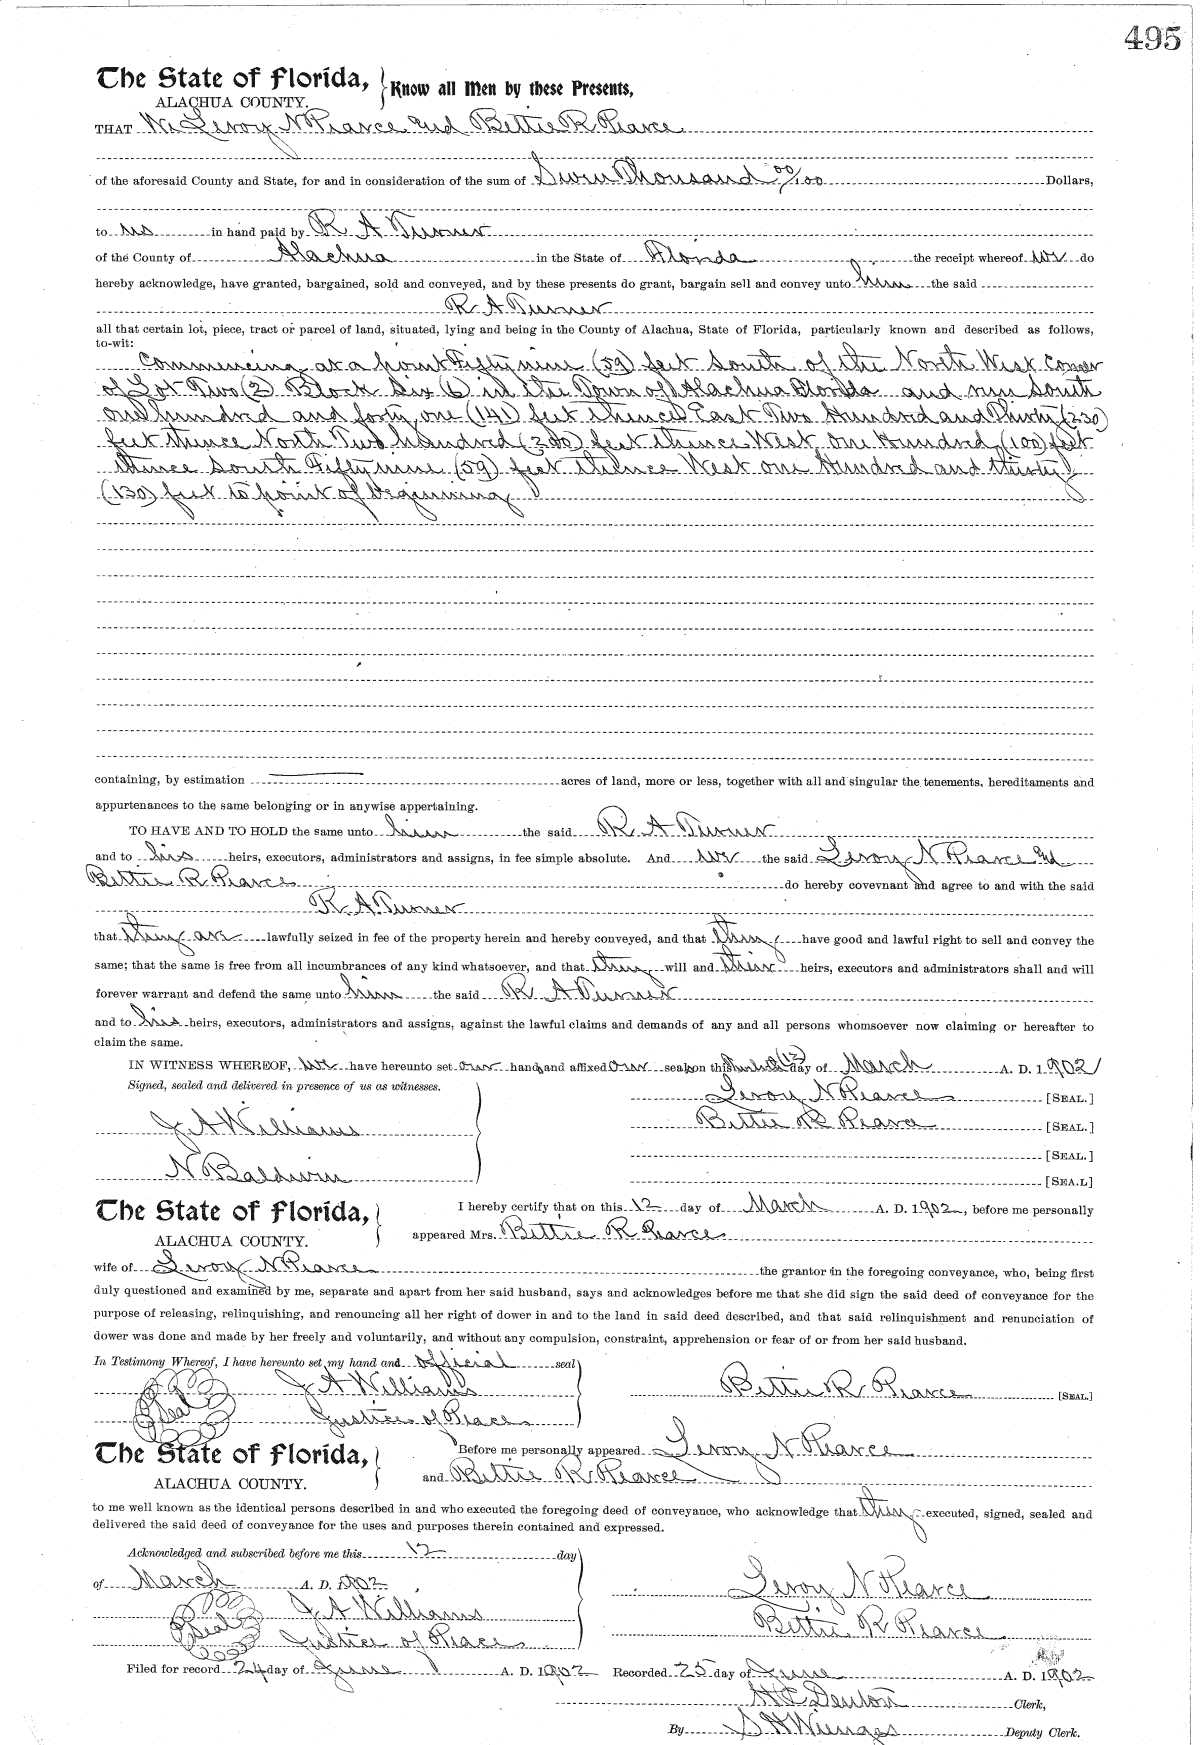 495
The State of Florida, Know all Men by these Presents,
ALACHUA COUNTY.
THAT We Leroy N Pearce and Bettie R Pearce
of the aforesaid County and State, for and in consideration of the sum of Seven Thousand 00/100 Dollars,
to us in hand paid by R A Turner
of the County of Alachua in the State of Florida the receipt whereof we do
hereby acknowledge, have granted, bargained, sold and conveyed, and by these presents do grant, bargain sell and convey unto him the said
R A Turner
all that certain lot, piece, tract or parcel of land, situated, lying and being in the County of Alachua, State of Florida, particularly known and described as follows,
to-wit:
Commencing at a point Fifty nine (59) feet South of the North West Corner
of Lot Two (2) Block Six (6) in the Town of Alachua Florida and run South
one hundred and forty one (141) feet thence East Two Hundred and Thirty (230)
feet thence North Two hundred (200) feet thence West one Hundred (100) feet
thence South Fifty nine (59) feet thence West one Hundred and thirty
(130) feet to point of beginning
containing, by estimation acres of land, more or less, together with all and singular the tenements, hereditaments and
appurtenances to the same belonging or in anywise appertaining.
TO HAVE AND TO HOLD the same unto him the said R A Turner
and to his heirs, executors, administrators and assigns, in fee simple absolute. And we the said Leroy N Pearce and
Bettie R Pearce do hereby covevnant and agree to and with the said
R A Turner
that they are lawfully seized in fee of the property herein and hereby conveyed, and that they have good and lawful right to sell and convey the
same; that the same is free from all incumbrances of any kind whatsoever, and that they will and their heirs, executors and administrators shall and will
forever warrant and defend the same unto him the said R A Turner
and to his heirs, executors, administrators and assigns, against the lawful claims and demands of any and all persons whomsoever now claiming or hereafter to
claim the same.
IN WITNESS WHEREOF, we have hereunto set our hands and affixed our seals on this (12) day of March A. D. 1902
Signed, sealed and delivered in presence of us as witnesses.
Leroy N Pearce [SEAL.]
J A Williams Bettie R Pearce [SEAL.]
[SEAL.]
N Baldwin [SEA.L]
The State of Florida, I hereby certify that on this 12 day of March A. D. 1902, before me personally
ALACHUA COUNTY. appeared Mrs. Bettie R Pearce
wife of Leroy N Pearce the grantor in the foregoing conveyance, who, being first
duly questioned and examined by me, separate and apart from her said husband, says and acknowledges before me that she did sign the said deed of conveyance for the
purpose of releasing, relinquishing, and renouncing all her right of dower in and to the land in said deed described, and that said relinquishment and renunciation of
dower was done and made by her freely and voluntarily, and without any compulsion, constraint, apprehension or fear of or from her said husband.
In Testimony Whereof, I have hereunto set my hand and official seal
J A Williams Bettie R Pearce [SEAL.]
Seal Justice of Peace
The State of Florida, Before me personally appeared Leroy N Pearce
ALACHUA COUNTY. and Bettie R Pearce
to me well known as the identical persons described in and who executed the foregoing deed of conveyance, who acknowledge that they executed, signed, sealed and
delivered the said deed of conveyance for the uses and purposes therein contained and expressed.
Acknowledged and subscribed before me this 12 day
of March A. D. 1902 Leroy N Pearce
J A Williams
Seal Justice of Peace Bettie R Pearce
Filed for record 24 day of June A. D. 1902 Recorded 25 day of June A. D. 1902
H C Denton Clerk,
By S H Wienges Deputy Clerk.